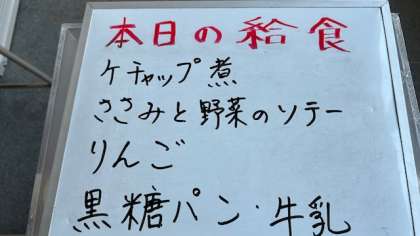 本日の給食
ケチャップ煮
ささみと野菜のソテー
りんご
黒糖パン・牛乳